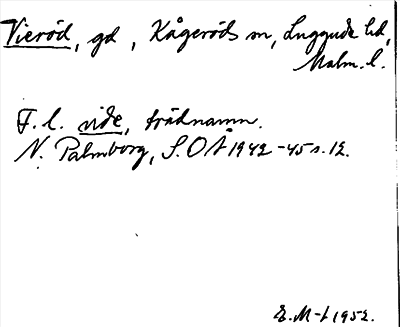 Vieröd, gd, Kågeröds sn, Luggude hd,
Malm. l.
F. l. vide, trädnamn.
N. Palmborg, S.O Å 1942-45 s. 12.
E. M-t 1952.